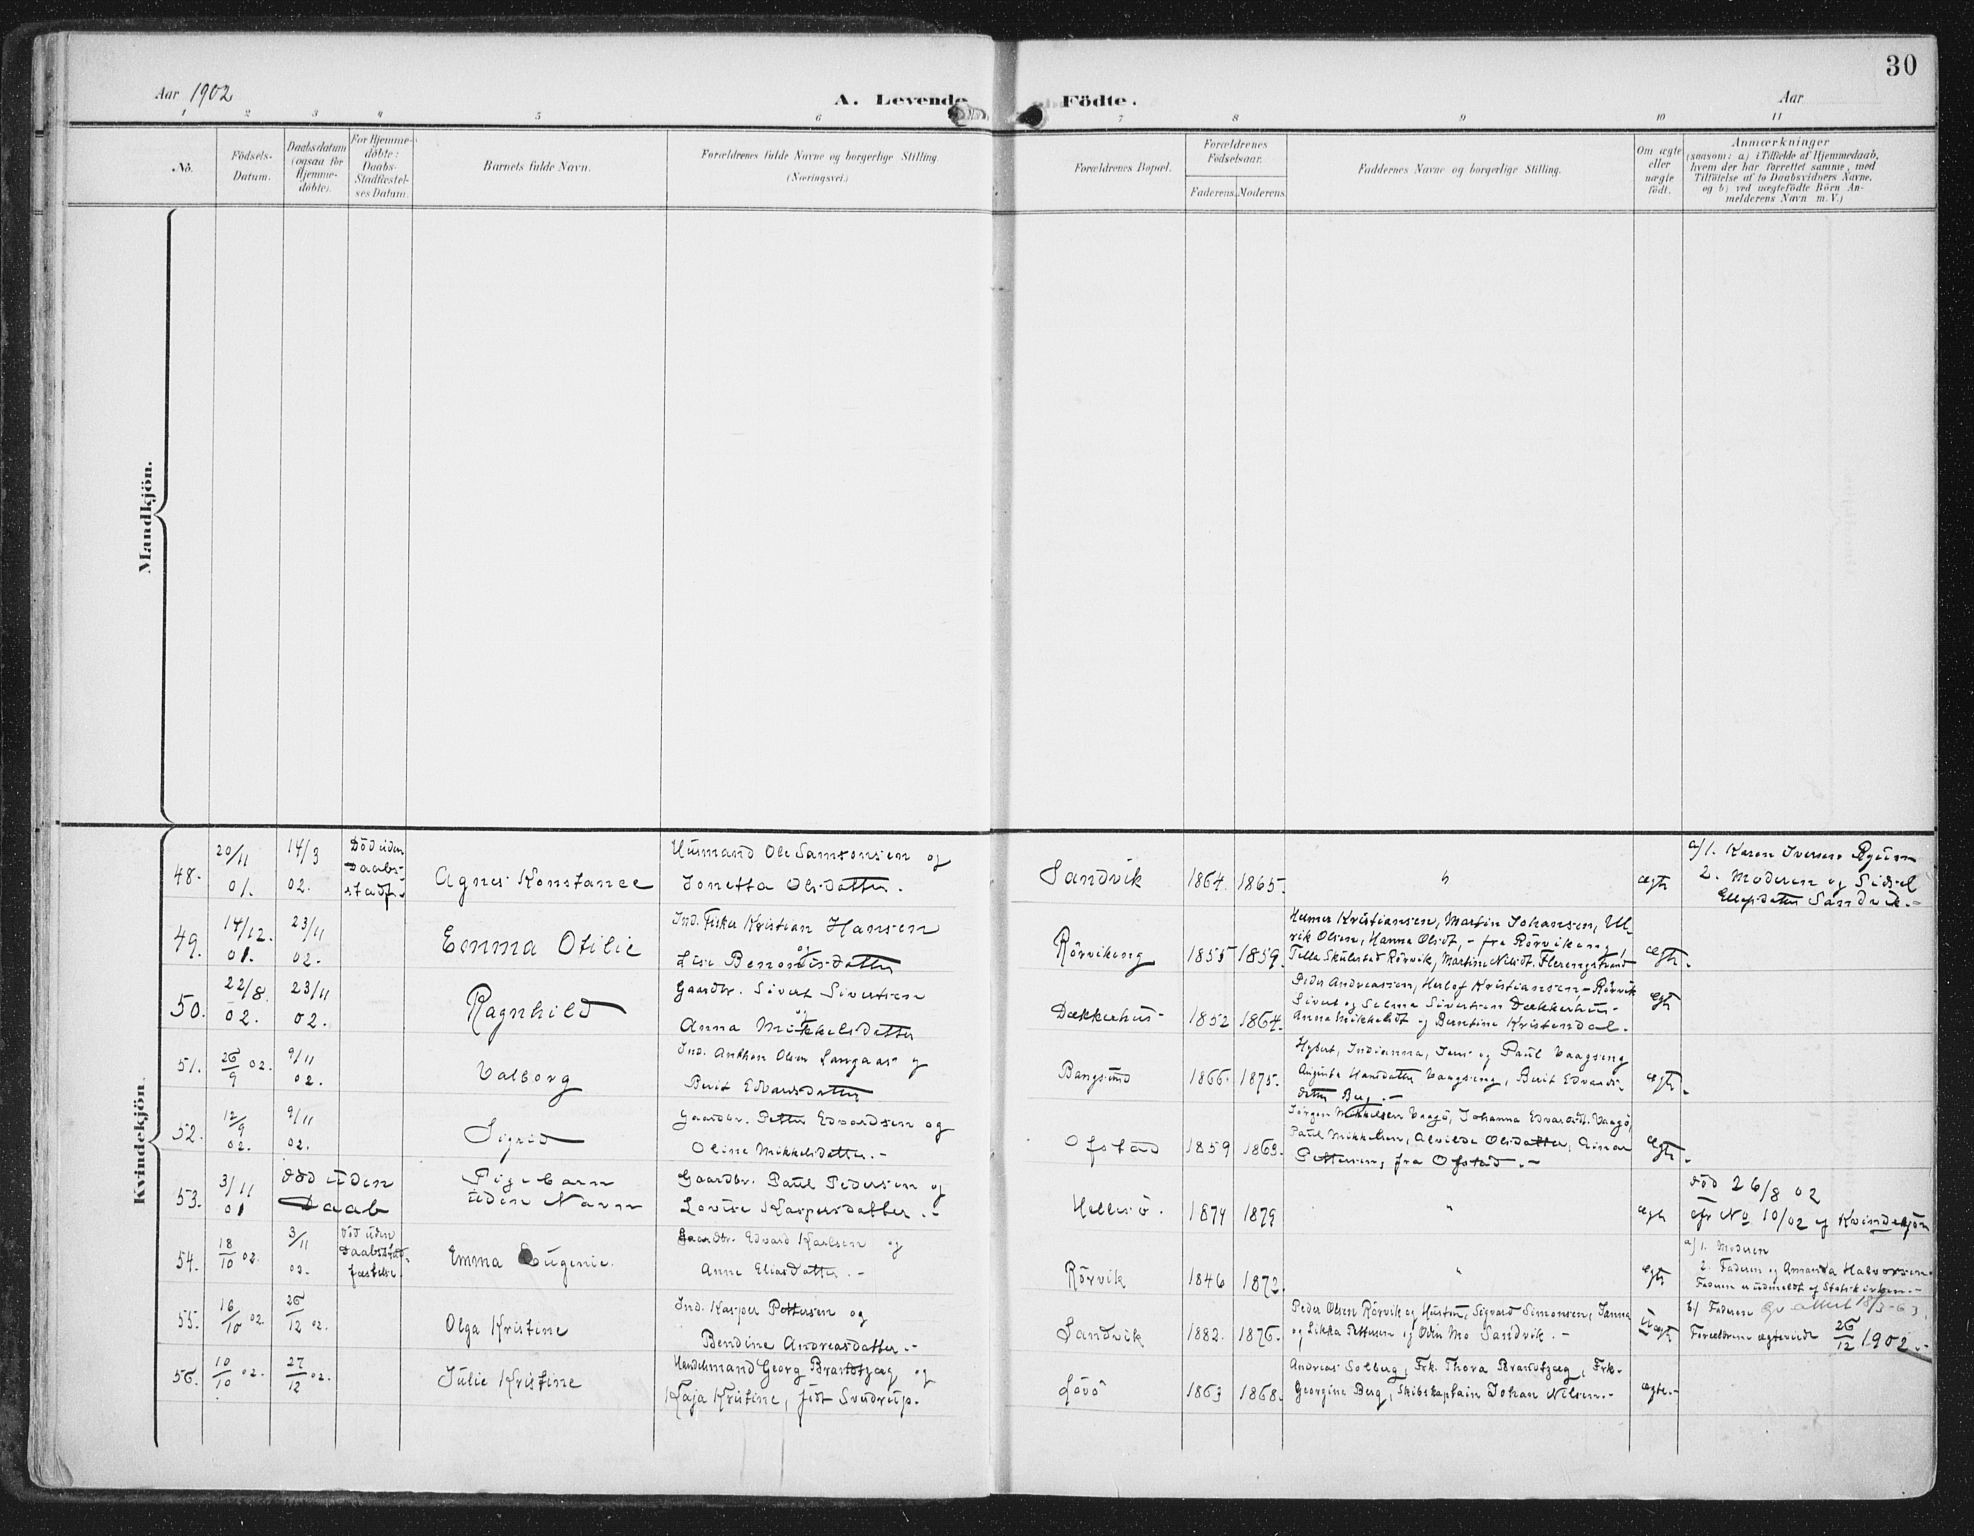 30
Aar 1902
A. Levende
Födte.
Aar
1 2 3 4 5 6 7 8 9 10 11
No.
Födsels-
Datum.
Daabsdatum
(ogsaa for
Hjemme-
döbte).
For Hjemme-
döbte:
Daabs-
Stadfæstel-
ses Datum.
Barnets fulde Navn.
Forældrenes fulde Navne og borgerlige Stilling.
(Næringsvei.)
Forældrenes Bopæl.
Forældrenes
Födselsaar.
Faderens. Moderens.
Faddernes Navne og borgerlige Stilling.
Om ægte
eller
uægte
födt.
Anmærkninger
(saasom: a) i Tilfælde af Hjemmedaab,
hvem der har forrettet samme, med
Tilföielse af to Daabsvidners Navne,
og b) ved uægtefödte Börn An-
melderens Navn m. V.)
Mandkjön.
Kvindekjön.
48.
20/11
01.
14/3
02.
Död uden
Daabs-
stadf.
Agnes Konstance
Husmand Ole Samsonsen og
Jonetta Olsdatter.
Sandvik
1864. 1865.
"
ægte
a/1. Karen Iversen
2. Moderen og Sidsel
Ellefsdatter Sandvik.-
49.
14/12.
01.
23/11
02.
Emma Otilie
Ind. Fisker Kristian Hansen
og
Lise Benonisdatter
Rörvikeng
1855 1859.
Helmer Kristiansen, Martin Johansen, Ul-
rik Olsen, Hanna Olsdt, - fra Rörvikeng,
Tella Skulstad Rörvik, Martine Nilsdt.
ægte.
50.
22/8.
02.
23/11
02.
Ragnhild
Gaardbr. Sivert Sivertsen
og
Anna Mikkelsdatter
Dækkerhus-
1852 1864.
Peder Andreassen, Herlof Kristiansen, - Rörvik
Sivert og Selma Sivertsen Dækkerhus-
Anna Mikkelsdt og Berntine Kristendal.
ægte
51.
26/9 02.
9/11
02.
Valborg
Ind. Anthon Olsen Langaas og
Berit Edvarsdatter
Bangsund
1866. 1875.
Hybert, Indianna, Jens og Paul Vaagseng
Augusta Hansdatter Vaagseng, Berit Edvards-
datter Berg.-
ægte.
52.
12/9
02.
9/11
02.
Sigrid
Gaardbr. Petter Edvardsen og
Oline Mikkelsdatter.-
Ofstad
1859 1863.
Jörgen Mikkelsen Vaagö, Johanna Edvardsdt. Vaagö,
Paul Mikkelsen, Alvilde Olsdatter, Einar
Pettersen, fra Ofstad.-
ægte.
53.
3/11
01
död uden
Daab
Pigebarn
uden Navn
Gaardbr. Paul Pedersen og
Lovise Kaspersdatter.-
Hellesö.
1874 1879
"
ægte
död 26/8 02
cfr No 10/02 af Kvindekjön
54.
18/10 02.
3/11
02.
död uden
Daabsstad-
fæstelse.
Emma Eugenie.
Gaardbr. Edvard Karlsen og
Anne Eliasdatter.-
Rörvik
1846 1872.
"
ægte
a/1. Moderen
2. Faderen og Amanda Halvorsen.
Faderen er udmeldt af Statskirken.-
55.
16/10 02.
26/12 02.
Olga Kristine
Ind. Kasper Pettersen og
Bendine Andreasdatter.-
Sandvik
1882. 1876.
Peder Olsen Rörvik og Hustru, Sigvard Simonsen, Janna
og Likka Pettersen og Odin Mo Sandvik.-
uægte
b/ Faderen attest 18/3-63
Forældrene ægteviede 26/12 1902.-
56.
10/10 02.
27/12 02.
Julie Kristine
Handelsmand Georg Brandtzæg og
Kaja Kristine, födt Svendrup.
Lövö
1863 1868.
Andreas Solberg, Frk. Thora Brandtzæg, Frk.
Georgine Berg, Skibskaptain Johan Nilsen.-
ægte.-